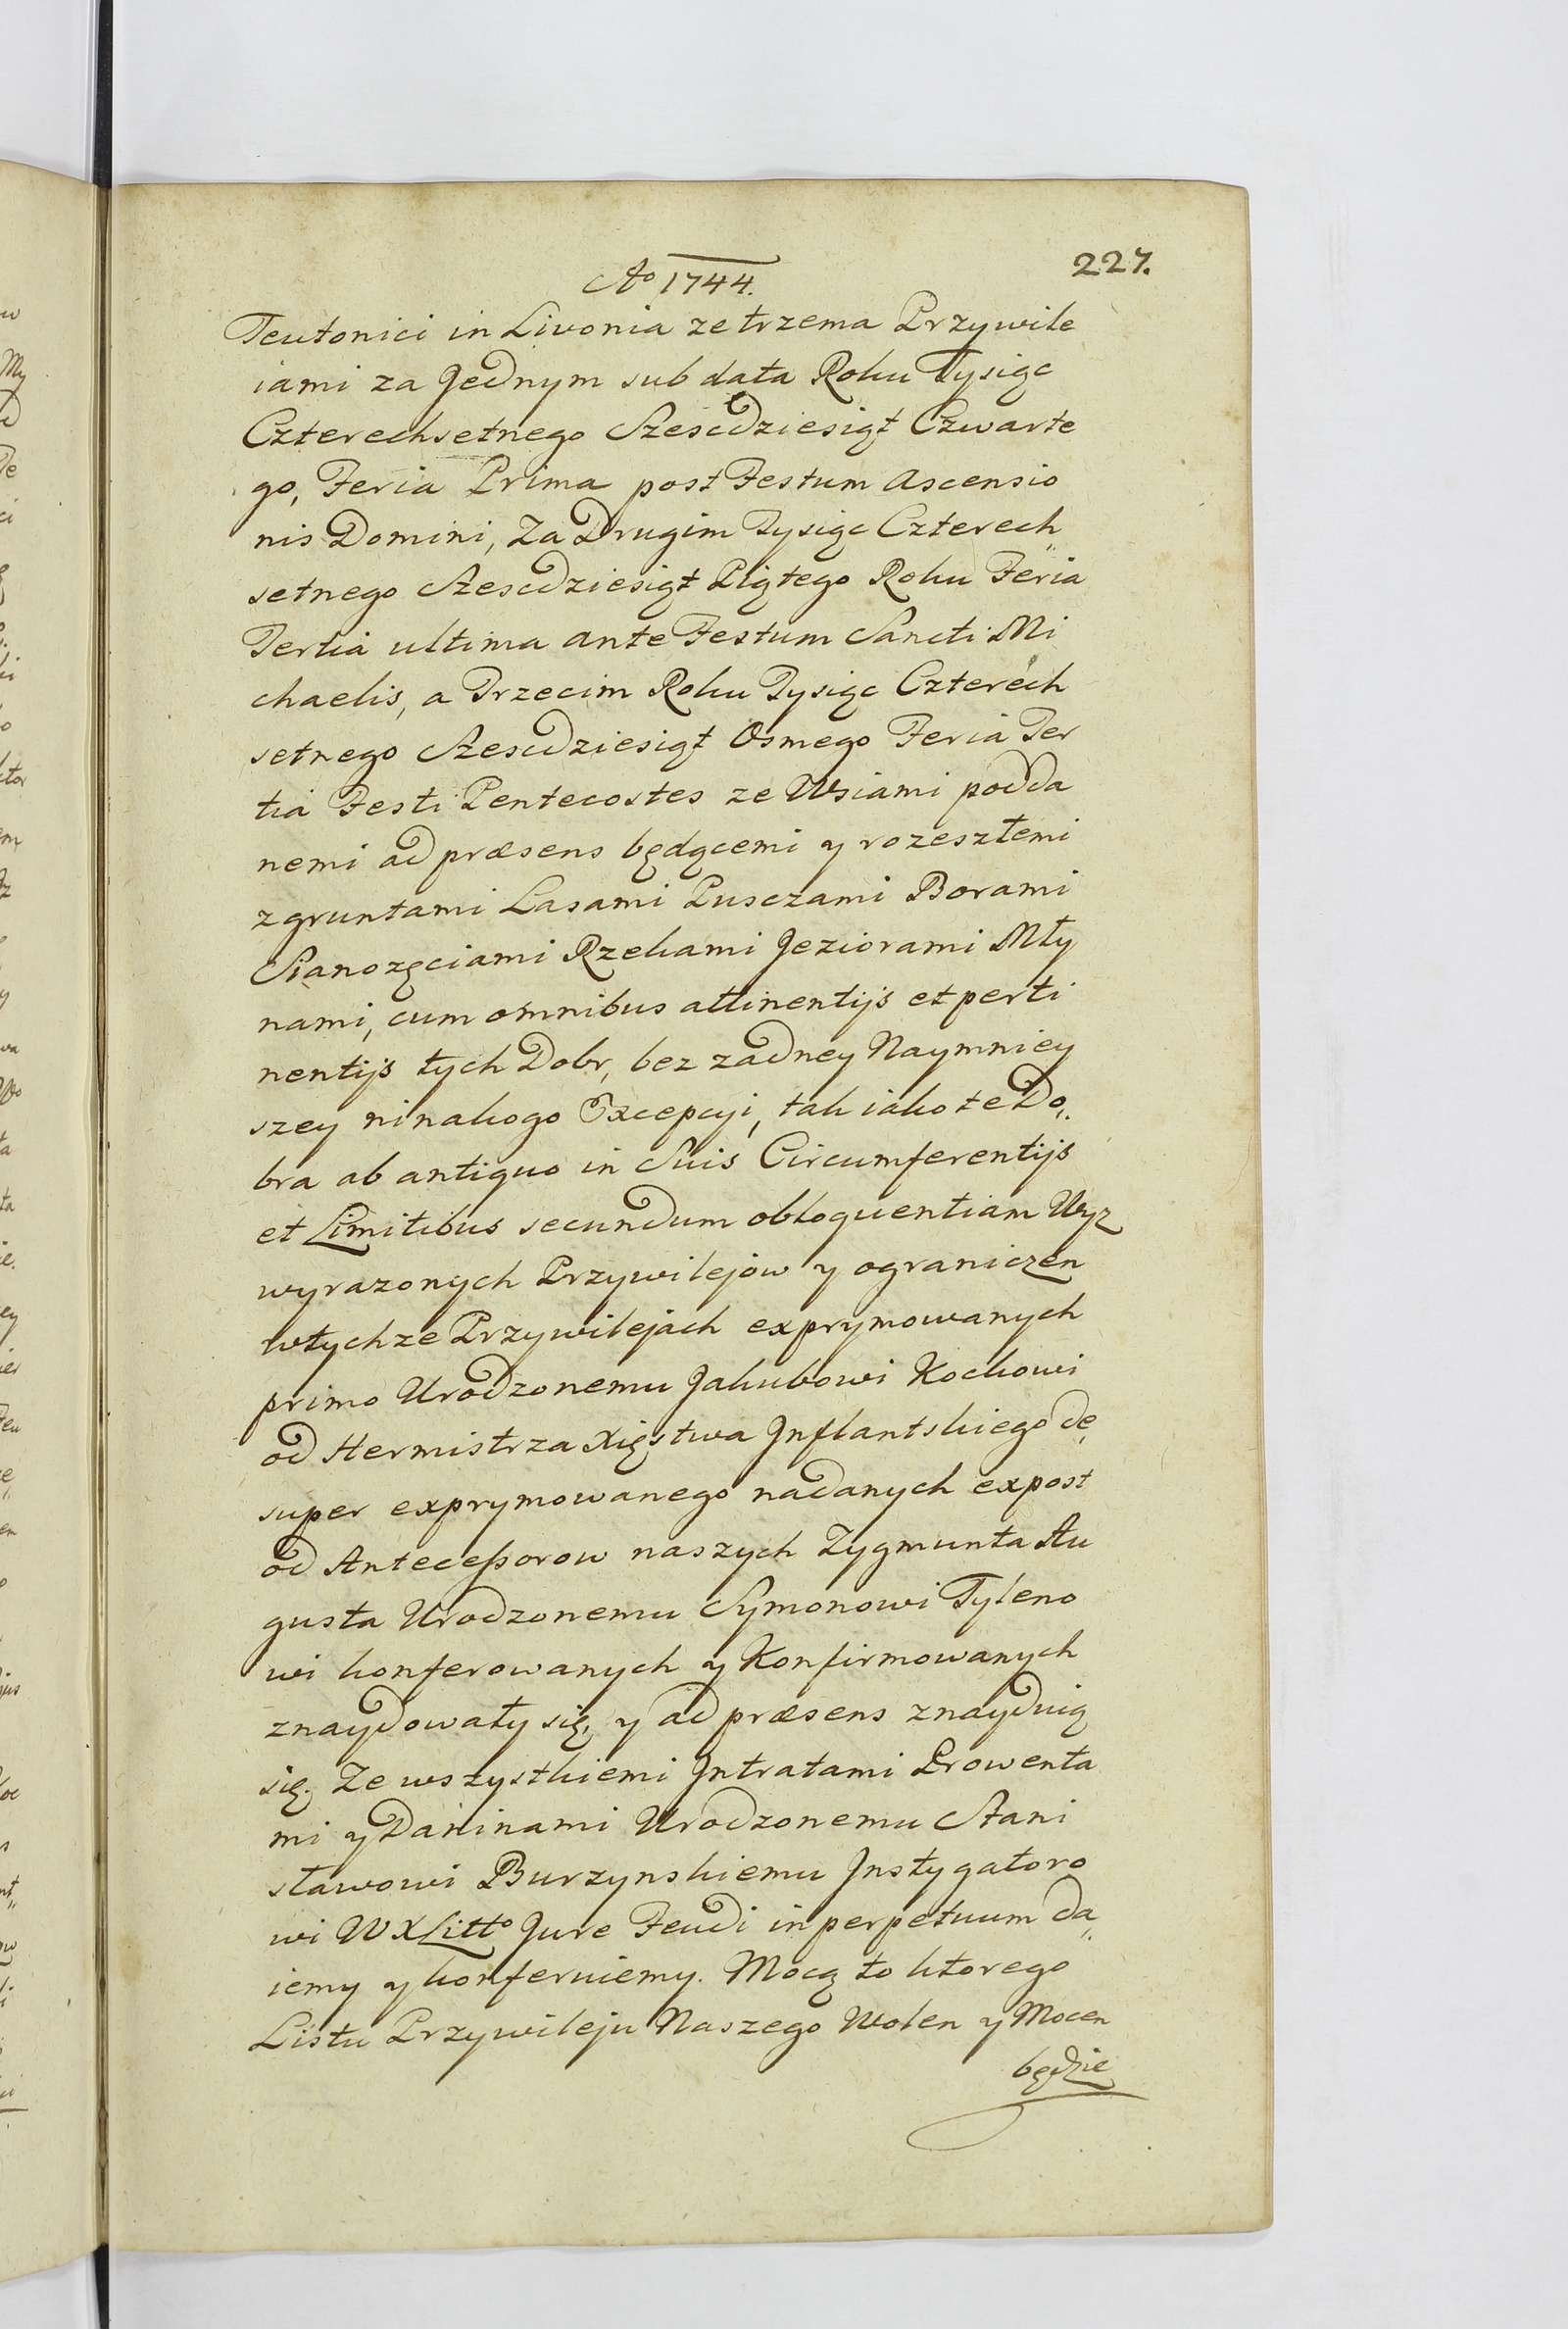 Ao 1744.
227.
Teutonici in Livonia ze trzema Przywile
iami za Jednym sub data Roku Tysiąc
Czterechsetnego Szescdziesiąt Czwarte
go, Feria Prima post Festum Ascensio
nis Domini, Za Drugim Tysiąc Czterech„
setnego Szescdziesiąt Piątego Roku Feria
Tertia ultima ante Festum Sancti Mi
chaelis, a Trzecim Roku Tysiąc Czterech
setnego Szescdziesiąt Osmego Feria Ter
tia Festi Pentecostes ze Wsiami podda
nemi ad præsens będącemi y rozeszłemi
z gruntami Lasami Pusczami Borami
Sianozęciami Rzekami Jeziorami Mły
nami, cum omnibus attinentijs et perti
nentijs tych Dobr, bez zadney Naymniey
szey ninakogo Excepcyi, tak iako te Do„
bra ab antiquo in Suis Circumferentijs
et Limitibus secundum obloquentiam Wyz
wyrazonych Przywilejow y ograniczen
wtychze Przywilejach exprymowanych
primo Urodzonemu Jakubowi Kochowi
od Hermistrza Xięstwa Jnflantskiego de„
super exprymowanego nadanych expost
od Antecessorow naszych Zygmunta Au
gusta Urodzonemu Symonowi Tyleno
wi konferowanych y Konfirmowanych
znaydowały się, y ad præsens znayduią
się. Ze wszystkiemi Jntratami Prowenta
mi y Daninami Urodzonemu Stani
sławowi Burzynskiemu Jnstygatoro
wi W X Litto Jure Feudi in perpetuum da„
iemy y konferuiemy. Mocą to ktorego
Listu Przywileju Naszego Wolen y Mocen
będzie